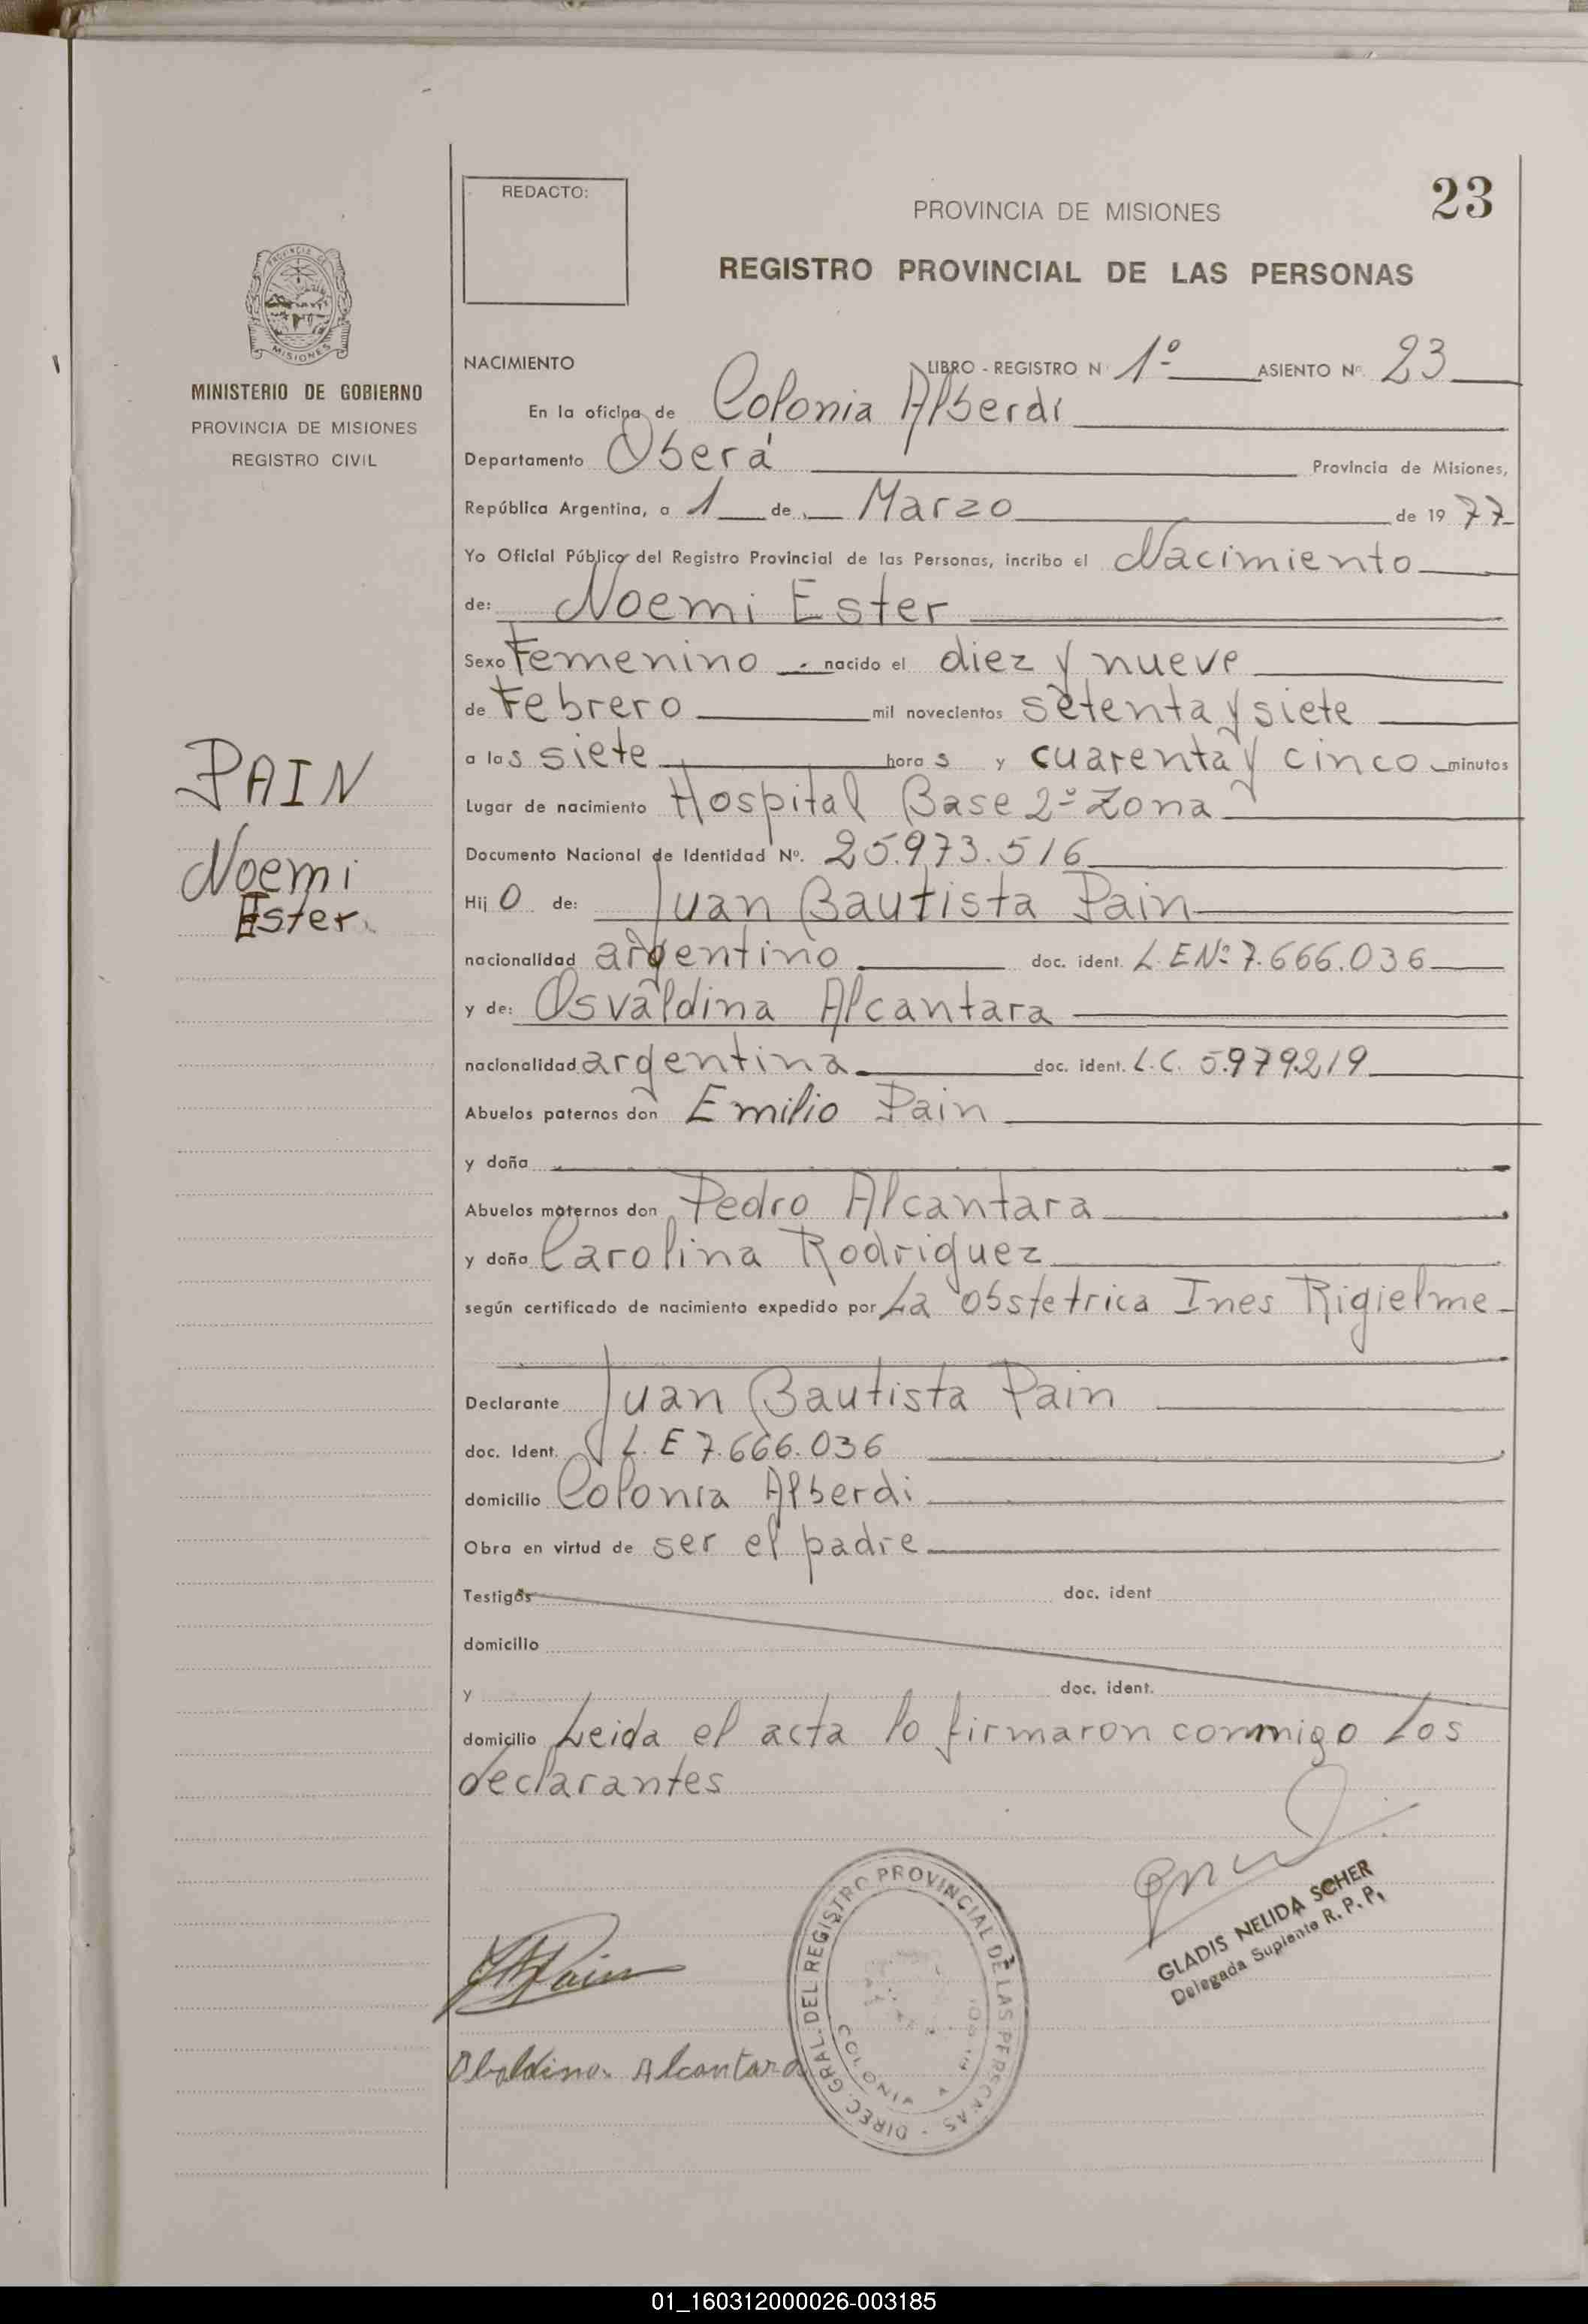 23
REDACTO:
PROVINCIA DE MISIONES
REGISTRO PROVINCIAL DE LAS PERSONAS
MISIONES
MINISTERIO DE GOBIERNO
PROVINCIA DE MISIONES
REGISTRO CIVIL
PAIN
Noemi
Ester
NACIMIENTO LIBRO - REGISTRO N 1º ASIENTO Nº 23
En la oficina de Colonia Alberdi
Departamento Oberá Provincia de Misiones,
República Argentina, a 1 de Marzo de 19 77
Yo Oficial Público del Registro Provincial de las Personas, incribo el Nacimiento
de: Noemi Ester
Sexo Femenino nacido el diez y nueve
de Febrero mil novecientos setenta y siete
a las siete horas y cuarenta y cinco minutos
Lugar de nacimiento Hospital Base 2º Zona
Documento Nacional de Identidad Nº. 25.973.516
Hij o de: Juan Bautista Pain
nacionalidad argentino doc. ident. L.E Nº 7.666.036
y de: Osvaldina Alcantara
nacionalidad argentina doc. ident. L.C. 5.979.219
Abuelos paternos don Emilio Pain
y doña
Abuelos maternos don Pedro Alcantara
y doña Carolina Rodriguez
según certificado de nacimiento expedido por La obstetrica Ines Rigielme
Declarante Juan Bautista Pain
doc. Ident. L.E 7.666.036
domicilio Colonia Alberdi
Obra en virtud de ser el padre
Testigos doc. ident
domicilio
y doc. ident.
domicilio Leida el acta lo firmaron conmigo los
declarantes
GLADIS NELIDA SCHER
Delegada Suplente R. P. P.
DIREC. GRAL. DEL REGISTRO PROVINCIAL DE LAS PERSONAS
COLONIA
JBPain
Obaldina Alcantara
01_160312000026-003185